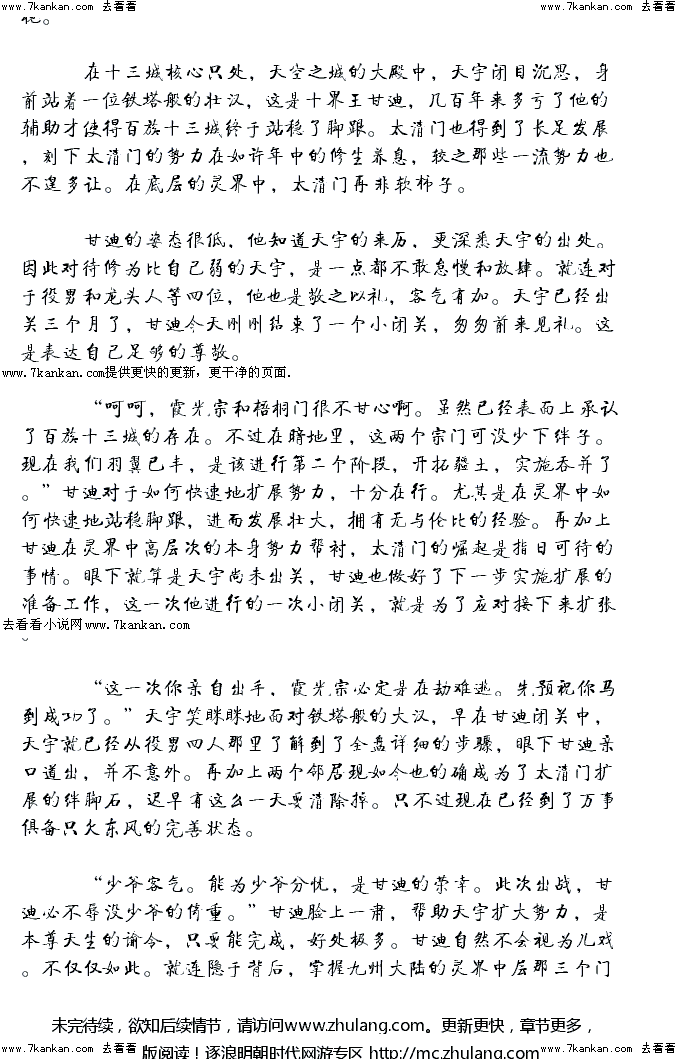 www.7kankan.com 去看看 www.7kankan.com 去看看
呢。
在十三城核心只处，天空之城的大殿中，天宇闭目沉思，身
前站着一位铁塔般的壮汉，这是十界王甘迪，几百年来多亏了他的
辅助才使得百族十三城终于站稳了脚跟。太清门也得到了长足发展
，刻下太清门的势力在如许年中的修生养息，较之那些一流势力也
不遑多让。在底层的灵界中，太清门再非软柿子。
甘迪的姿态很低，他知道天宇的来历，更深悉天宇的出处。
因此对待修为比自己弱的天宇，是一点都不敢怠慢和放肆。就连对
于役男和龙头人等四位，他也是敬之以礼，客气有加。天宇已经出
关三个月了，甘迪今天刚刚结束了一个小闭关，匆匆前来见礼。这
是表达自己足够的尊敬。
www.7kankan.com提供更快的更新，更干净的页面.
“呵呵，霞光宗和梧桐门很不甘心啊。虽然已经表面上承认
了百族十三城的存在。不过在暗地里，这两个宗门可没少下绊子。
现在我们羽翼已丰，是该进行第二个阶段，开拓疆土，实施吞并了
。”甘迪对于如何快速地扩展势力，十分在行。尤其是在灵界中如
何快速地站稳脚跟，进而发展壮大，拥有无与伦比的经验。再加上
甘迪在灵界中高层次的本身势力帮衬，太清门的崛起是指日可待的
事情。眼下就算是天宇尚未出关，甘迪也做好了下一步实施扩展的
准备工作，这一次他进行的一次小闭关，就是为了应对接下来扩张
去看看小说网www.7kankan.com
。
“这一次你亲自出手，霞光宗必定是在劫难逃。先预祝你马
到成功了。”天宇笑眯眯地面对铁塔般的大汉，早在甘迪闭关中，
天宇就已经从役男四人那里了解到了全盘详细的步骤，眼下甘迪亲
口道出，并不意外。再加上两个邻居现如今也的确成为了太清门扩
展的绊脚石，迟早有这么一天要清除掉。只不过现在已经到了万事
俱备只欠东风的完善状态。
“少爷客气。能为少爷分忧，是甘迪的荣幸。此次出战，甘
迪必不辱没少爷的倚重。”甘迪脸上一肃，帮助天宇扩大势力，是
本尊天生的谕令，只要能完成，好处极多。甘迪自然不会视为儿戏
。不仅仅如此。就连隐于背后，掌握九州大陆的灵界中层那三个门
未完待续，欲知后续情节，请访问www.zhulang.com。更新更快，章节更多，
版阅读！逐浪明朝时代网游专区 http://mc.zhulang.com
www.7kankan.com 去看看 www.7kankan.com 去看看